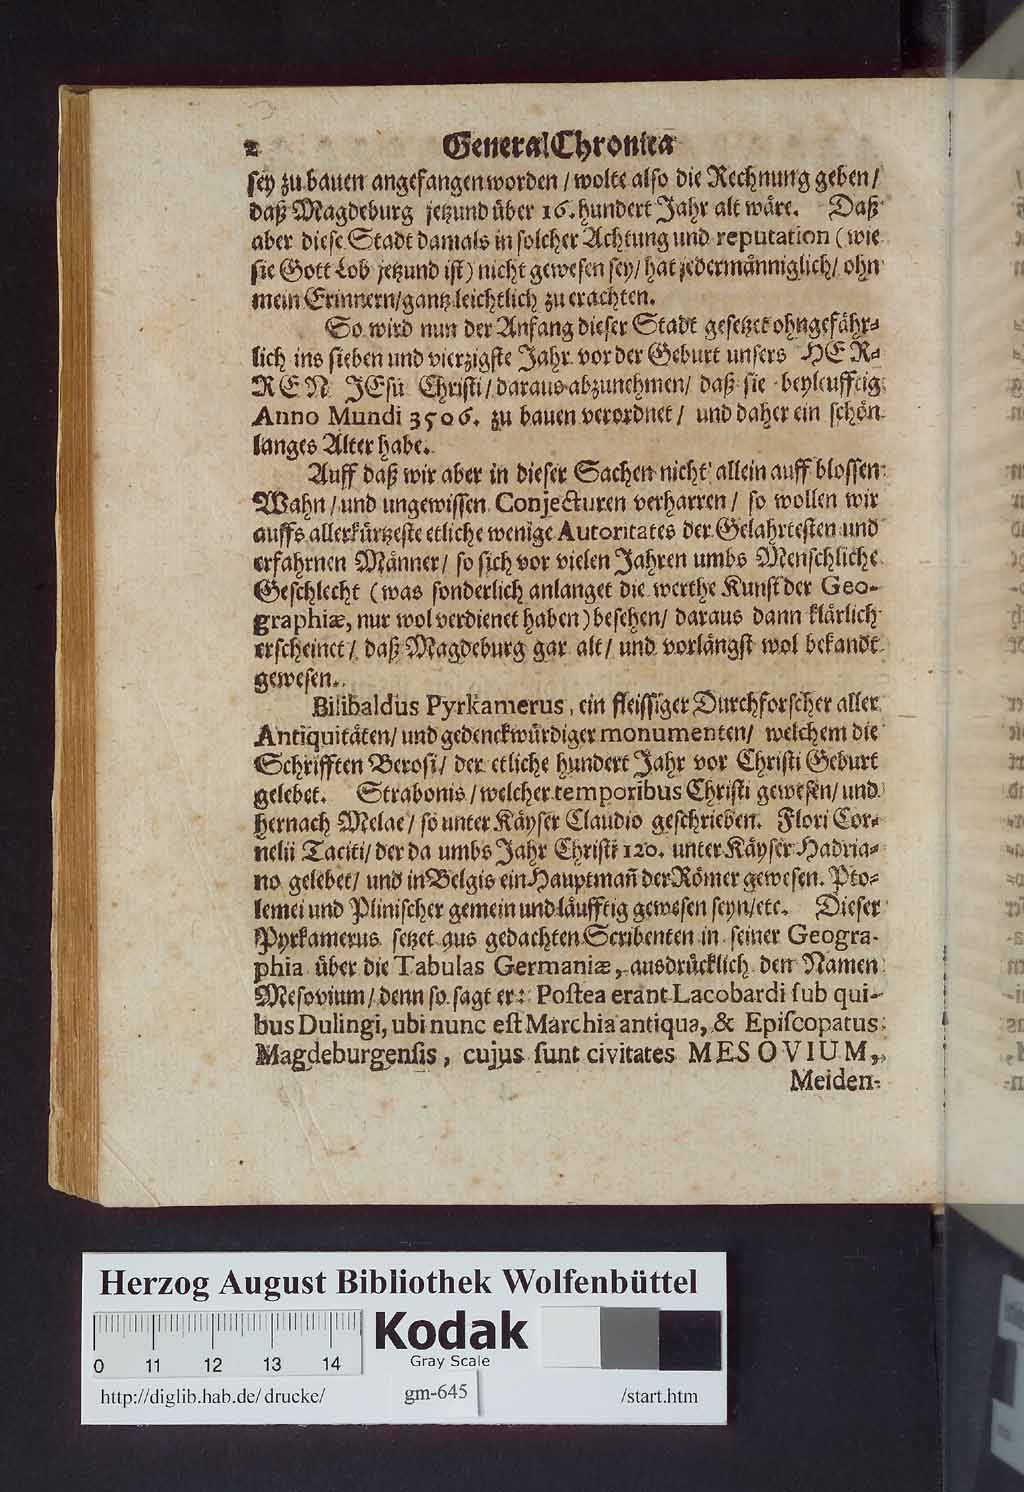 2 General Chronica
sey zu bauen angefangen worden / wolte also die Rechnung geben /
daß Magdeburg jetzund über 16. hundert Jahr alt wäre. Daß
aber diese Stadt damals in solcher Achtung und reputation (wie
sie Gott Lob jetzund ist) nicht gewesen sey / hat jedermänniglich / ohn
mein Erinnern / gantz leichtlich zu erachten.
So wird nun der Anfang dieser Stadt gesetzet ohngefähr-
lich ins sieben und vierzigste Jahr vor der Geburt unsers HER-
REN JEsu Christi / daraus abzunehmen / daß sie beyleufftig
Anno Mundi 3506. zu bauen verordnet / und daher ein schön
langes Alter habe.
Auff daß wir aber in dieser Sachen nicht allein auff blossen
Wahn / und ungewissen Conjecturen verharren / so wollen wir
auffs allerkürtzeste etliche wenige Autoritates der Gelahrtesten und
erfahrnen Männer / so sich vor vielen Jahren umbs Menschliche
Geschlecht (was sonderlich anlanget die werthe Kunst der Geo-
graphiæ, nur wol verdienet haben) besehen / daraus dann klärlich
erscheinet / daß Magdeburg gar alt / und vorlängst wol bekandt
gewesen.
Bilibaldus Pyrkamerus, ein fleissiger Durchforscher aller
Antiquitäten / und gedenckwürdiger monumenten / welchem die
Schrifften Berosi / der etliche hundert Jahr vor Christi Geburt
gelebet. Strabonis / welcher temporibus Christi gewesen / und
hernach Melae / so unter Käyser Claudio geschrieben. Flori Cor-
nelii Taciti / der da umbs Jahr Christi 120. unter Käyser Hadria-
no gelebet / und in Belgis ein Hauptmañ der Römer gewesen. Pto-
lemei und Plinischer gemein und läufftig gewesen seyn / etc. Dieser
Pyrkamerus setzet aus gedachten Scribenten in seiner Geogra-
phia über die Tabulas Germaniæ, ausdrücklich den Namen
Mesovium / denn so sagt er: Postea erant Lacobardi sub qui-
bus Dulingi, ubi nunc est Marchia antiqua, & Episcopatus
Magdeburgensis, cujus sunt civitates MESOVIUM,
Meiden-
Herzog August Bibliothek Wolfenbüttel
Kodak
Gray Scale
0 11 12 13 14
http://diglib.hab.de/drucke/ gm-645 /start.htm